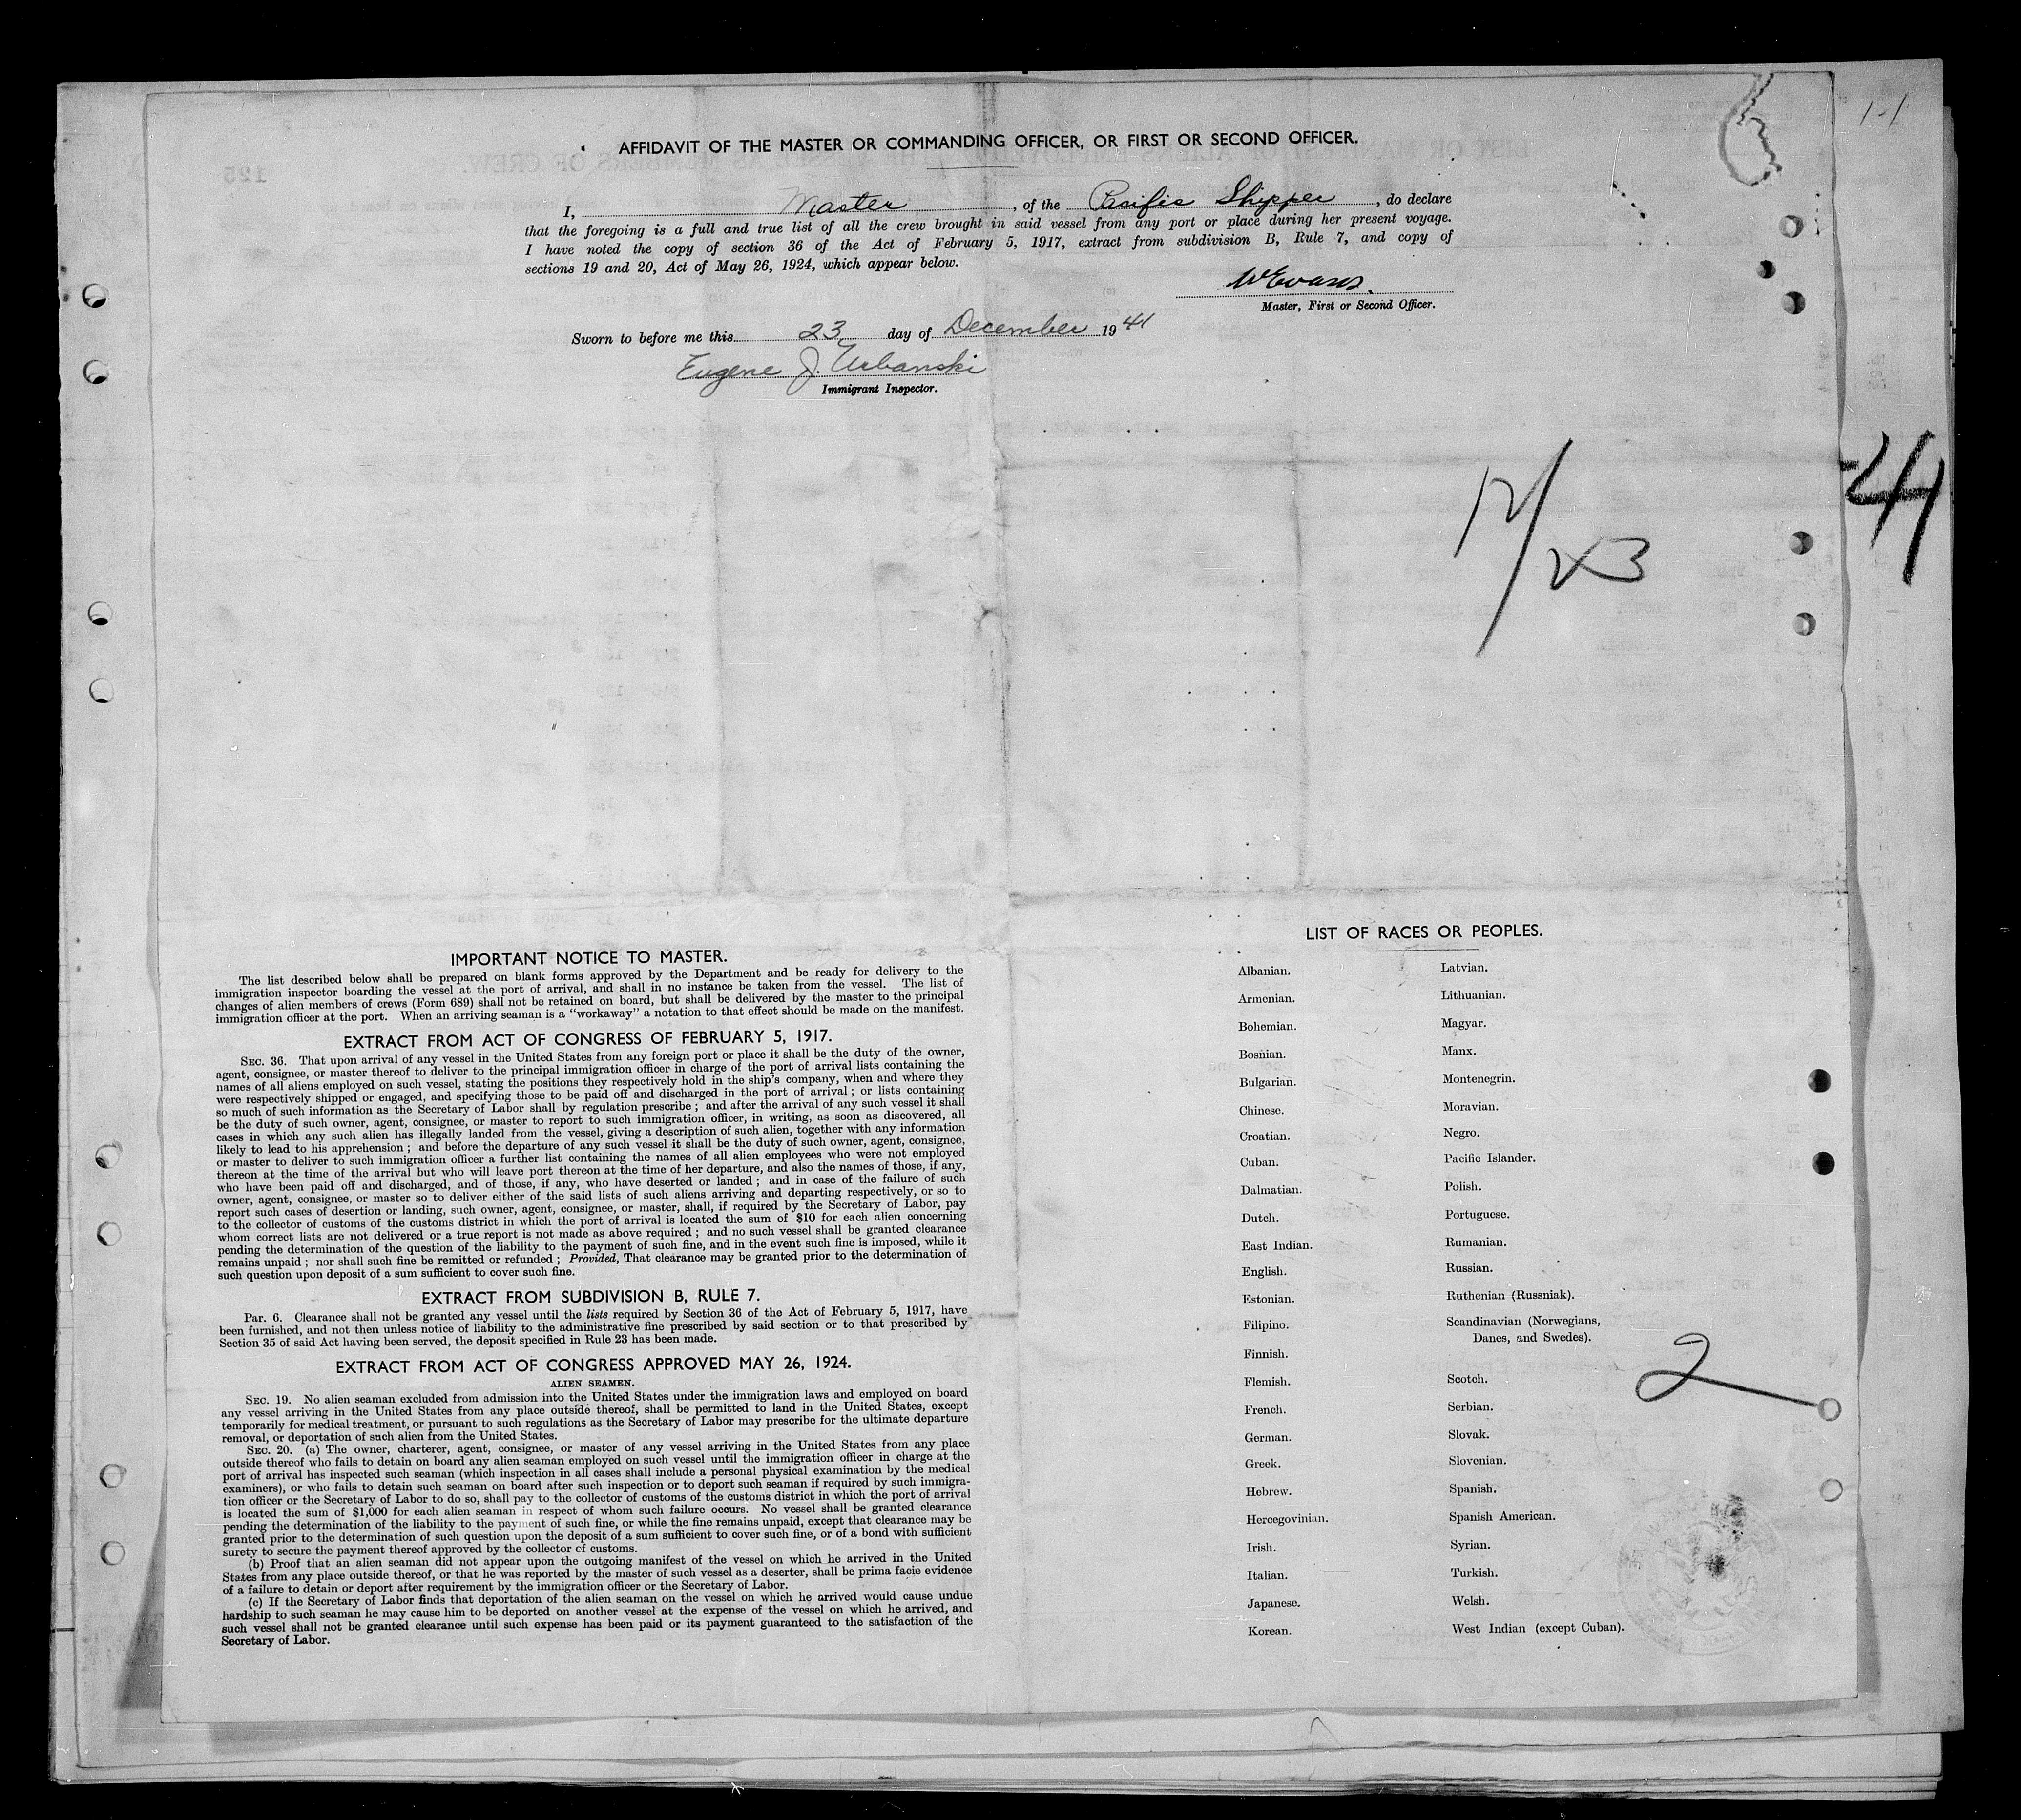 AFFIDAVIT OF THE MASTER OR COMMANDING OFFICER, OR FIRST OR SECOND OFFICER.
I, Master, of the Pacific Shipper, do declare
that the foregoing is a full and true list of all the crew brought in said vessel from any port or place during her present voyage.
I have noted the copy of section 36 of the Act of February 5, 1917, extract from subdivision B, Rule 7, and copy of
sections 19 and 20, Act of May 26, 1924, which appear below.
WEvans.
Master, First or Second Officer.
Sworn to before me this 23 day of December 1941
Eugene J. Urbanski
Immigrant Inspector.
12/23
IMPORTANT NOTICE TO MASTER.
The list described below shall be prepared on blank forms approved by the Department and be ready for delivery to the
immigration inspector boarding the vessel at the port of arrival, and shall in no instance be taken from the vessel. The list of
changes of alien members of crews (Form 689) shall not be retained on board, but shall be delivered by the master to the principal
immigration officer at the port. When an arriving seaman is a "workaway" a notation to that effect should be made on the manifest.
EXTRACT FROM ACT OF CONGRESS OF FEBRUARY 5, 1917.
SEC. 36. That upon arrival of any vessel in the United States from any foreign port or place it shall be the duty of the owner,
agent, consignee, or master thereof to deliver to the principal immigration officer in charge of the port of arrival lists containing the
names of all aliens employed on such vessel, stating the positions they respectively hold in the ship's company, when and where they
were respectively shipped or engaged, and specifying those to be paid off and discharged in the port of arrival; or lists containing
so much of such information as the Secretary of Labor shall by regulation prescribe; and after the arrival of any such vessel it shall
be the duty of such owner, agent, consignee, or master to report to such immigration officer, in writing, as soon as discovered, all
cases in which any such alien has illegally landed from the vessel, giving a description of such alien, together with any information
likely to lead to his apprehension; and before the departure of any such vessel it shall be the duty of such owner, agent, consignee,
or master to deliver to such immigration officer a further list containing the names of all alien employees who were not employed
thereon at the time of the arrival but who will leave port thereon at the time of her departure, and also the names of those, if any,
who have been paid off and discharged, and of those, if any, who have deserted or landed; and in case of the failure of such
owner, agent, consignee, or master so to deliver either of the said lists of such aliens arriving and departing respectively, or so to
report such cases of desertion or landing, such owner, agent, consignee, or master, shall, if required by the Secretary of Labor, pay
to the collector of customs of the customs district in which the port of arrival is located the sum of $10 for each alien concerning
whom correct lists are not delivered or a true report is not made as above required; and no such vessel shall be granted clearance
pending the determination of the question of the liability to the payment of such fine, and in the event such fine is imposed, while it
remains unpaid; nor shall such fine be remitted or refunded; Provided, That clearance may be granted prior to the determination of
such question upon deposit of a sum sufficient to cover such fine.
EXTRACT FROM SUBDIVISION B, RULE 7.
Par. 6. Clearance shall not be granted any vessel until the lists required by Section 36 of the Act of February 5, 1917, have
been furnished, and not then unless notice of liability to the administrative fine prescribed by said section or to that prescribed by
Section 35 of said Act having been served, the deposit specified in Rule 23 has been made.
EXTRACT FROM ACT OF CONGRESS APPROVED MAY 26, 1924.
ALIEN SEAMEN.
SEC. 19. No alien seaman excluded from admission into the United States under the immigration laws and employed on board
any vessel arriving in the United States from any place outside thereof, shall be permitted to land in the United States, except
temporarily for medical treatment, or pursuant to such regulations as the Secretary of Labor may prescribe for the ultimate departure
removal, or deportation of such alien from the United States.
SEC. 20. (a) The owner, charterer, agent, consignee, or master of any vessel arriving in the United States from any place
outside thereof who fails to detain on board any alien seaman employed on such vessel until the immigration officer in charge at the
port of arrival has inspected such seaman (which inspection in all cases shall include a personal physical examination by the medical
examiners), or who fails to detain such seaman on board after such inspection or to deport such seaman if required by such immigra-
tion officer or the Secretary of Labor to do so, shall pay to the collector of customs of the customs district in which the port of arrival
is located the sum of $1,000 for each alien seaman in respect of whom such failure occurs. No vessel shall be granted clearance
pending the determination of the liability to the payment of such fine, or while the fine remains unpaid, except that clearance may be
granted prior to the determination of such question upon the deposit of a sum sufficient to cover such fine, or of a bond with sufficient
surety to secure the payment thereof approved by the collector of customs.
(b) Proof that an alien seaman did not appear upon the outgoing manifest of the vessel on which he arrived in the United
States from any place outside thereof, or that he was reported by the master of such vessel as a deserter, shall be prima facie evidence
of a failure to detain or deport after requirement by the immigration officer or the Secretary of Labor.
(c) If the Secretary of Labor finds that deportation of the alien seaman on the vessel on which he arrived would cause undue
hardship to such seaman he may cause him to be deported on another vessel at the expense of the vessel on which he arrived, and
such vessel shall not be granted clearance until such expense has been paid or its payment guaranteed to the satisfaction of the
Secretary of Labor.
LIST OF RACES OR PEOPLES.
Albanian.
Armenian.
Bohemian.
Bosnian.
Bulgarian.
Chinese.
Croatian.
Cuban.
Dalmatian.
Dutch.
East Indian.
English.
Estonian.
Filipino.
Finnish.
Flemish.
French.
German.
Greek.
Hebrew.
Hercegovinian.
Irish.
Italian.
Japanese.
Korean.
Latvian.
Lithuanian.
Magyar.
Manx.
Montenegrin.
Moravian.
Negro.
Pacific Islander.
Polish.
Portuguese.
Rumanian.
Russian.
Ruthenian (Russniak).
Scandinavian (Norwegians,
Danes, and Swedes).
Scotch.
Serbian.
Slovak.
Slovenian.
Spanish.
Spanish American.
Syrian.
Turkish.
Welsh.
West Indian (except Cuban).
2